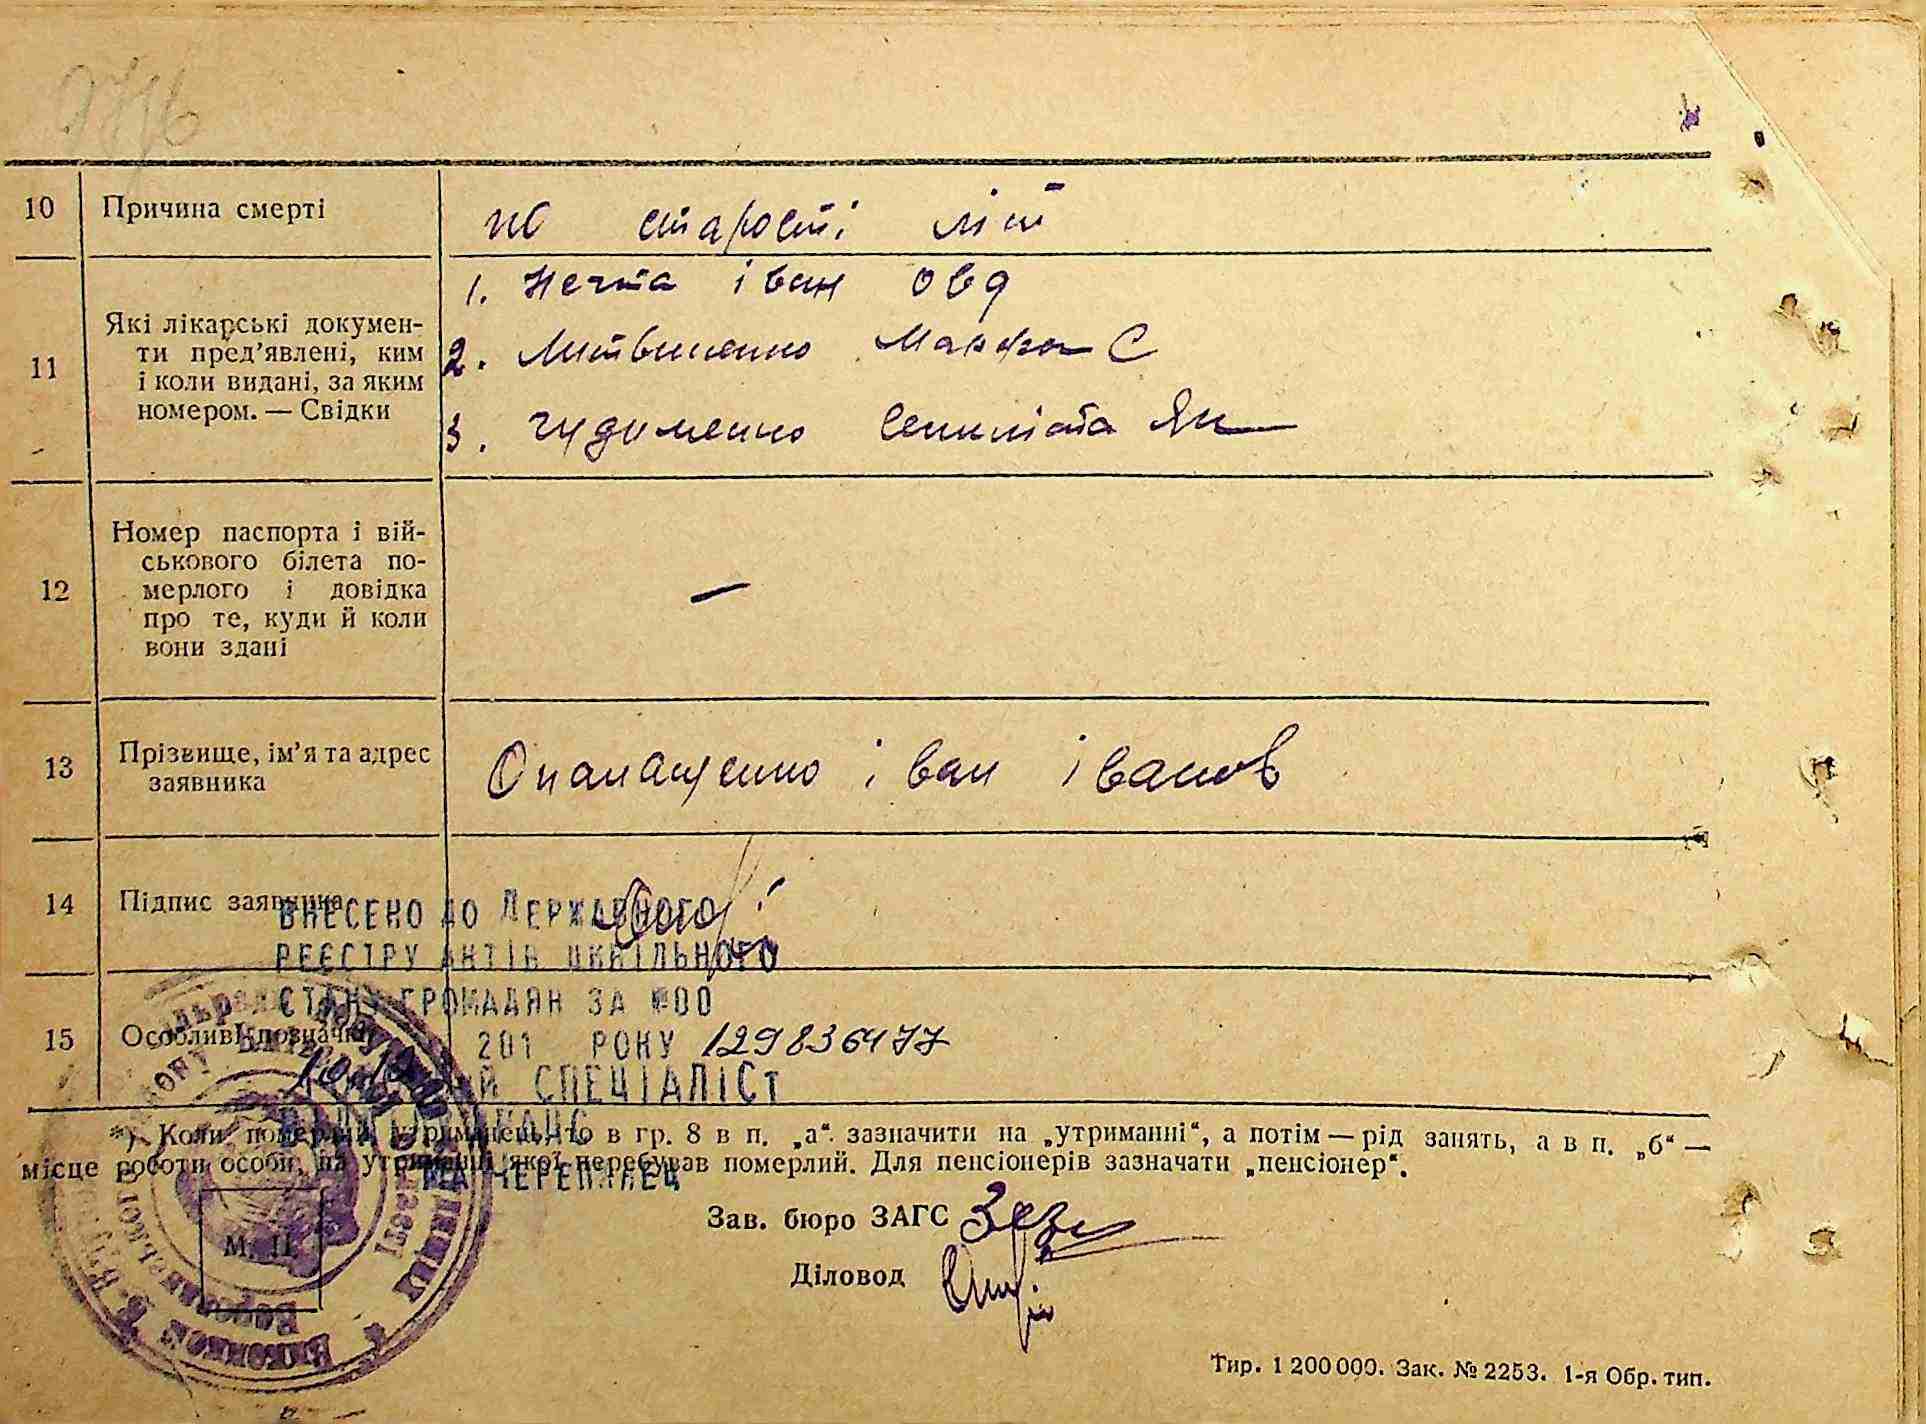 10 Причина смерті по старості літ
11 Які лікарські докумен-
ти пред’явлені, ким
і коли видані, за яким
номером. — Свідки
1. Нечта іван Овд
2. Литвиненко Марфа С
3. Чудименко Яκ
12 Номер паспорта і вій-
ськового білета по-
мерлого і довідка
про те, куди й коли
вони здані
—
13 Прізвище, ім’я та адрес
заявника
Опанащенко іван іванов
14 Підпис заявника
ВНЕСЕНО ДО ДЕРЖАВНОГО
РЕЄСТРУ АКТІВ ЦИВІЛЬНОГО
СТАНУ ГРОМАДЯН ЗА №00
15 Особливі позначки
201 РОКУ 129836477
СПЕЦІАЛІСТ
*) Коли померлий утриманець, то в гр. 8 в п. „а“ зазначити на „утриманні“, а потім — рід занять, а в п. „б“ —
місце роботи особи, на утриманні якої перебував померлий. Для пенсіонерів зазначати „пенсіонер“.
ЧЕРЕПАНЕЦ
Зав. бюро ЗАГС
М. П.
Діловод
Тир. 1 200 000. Зак. № 2253. 1-я Обр. тип.